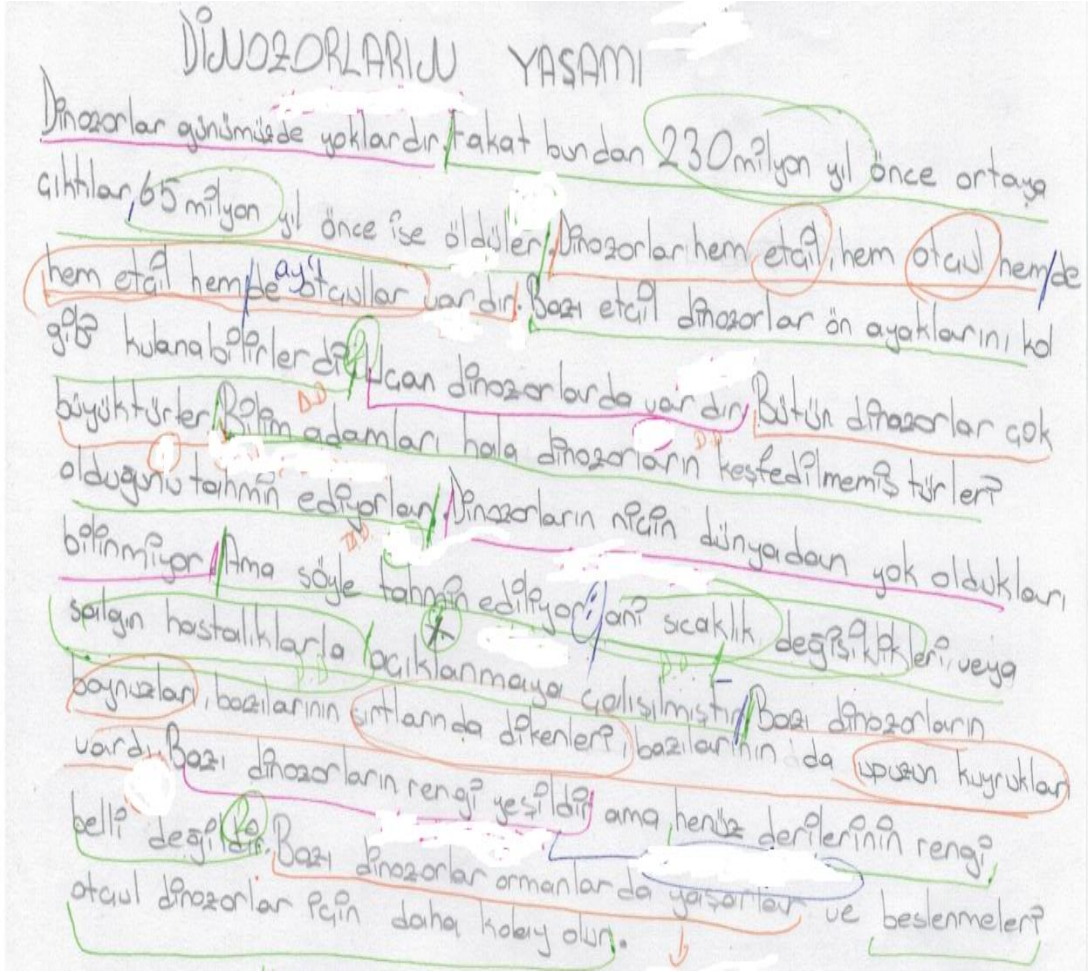 DİNOZORLARIN YAŞAMI
Dinozorlar günümüzde yoklardır, fakat bundan 230 milyon yıl önce ortaya
çıktılar, 65 milyon yıl önce ise öldüler. Dinozorlar hem etçil, hem otçul hem de
hem etçil hem de ayıt otçullar vardır. Bazı etçil dinozorlar ön ayaklarını kol
gibi kulanabilirlerdi. Uçan dinozorlarda vardır. Bütün dinozorlar çok
büyüktürler. Bilim adamları hala dinozorların keşfedilmemiş türleri
D.D D.D
olduğunu tahmin ediyorlar. Dinozorların niçin dünyadan yok oldukları
bilinmiyor. Ama söyle tahmin ediliyor: ani sıcaklık değişiklikleri, veya
D.D.
salgın hastalıklarla açıklanmaya çalışılmıştır. Bazı dinozorların
D.D D.D
boynuzları, bazılarının sırtlarında dikenleri, bazılarının da upuzun kuyrukları
vardı. Bazı dinozorların rengi yeşildir ama henüz derilerinin rengi
belli değildir. Bazı dinozorlar ormanlarda yaşarlar ve beslenmeleri
otçul dinozorlar için daha kolay olur.